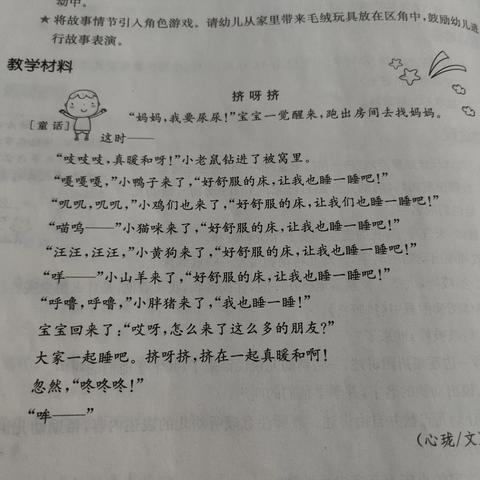 动中。
★ 将故事情节引入角色游戏。请幼儿从家里带来毛绒玩具放在区角中，鼓励幼儿进
行故事表演。
教学材料
挤呀挤
[童话]
“妈妈，我要尿尿！”宝宝一觉醒来，跑出房间去找妈妈。
这时——
“吱吱吱，真暖和呀！”小老鼠钻进了被窝里。
“嘎嘎嘎，”小鸭子来了，“好舒服的床，让我也睡一睡吧！”
“叽叽，叽叽，”小鸡们也来了，“好舒服的床，让我们也睡一睡吧！”
“喵呜——”小猫咪来了，“好舒服的床，让我也睡一睡吧！”
“汪汪，汪汪，”小黄狗来了，“好舒服的床，让我也睡一睡吧！”
“咩——”小山羊来了，“好舒服的床，让我也睡一睡吧！”
“呼噜，呼噜，”小胖猪来了，“我也睡一睡！”
宝宝回来了：“哎呀，怎么来了这么多的朋友？”
大家一起睡吧。挤呀挤，挤在一起真暖和啊！
忽然，“咚咚咚！”
“哞——”
（心珑/文